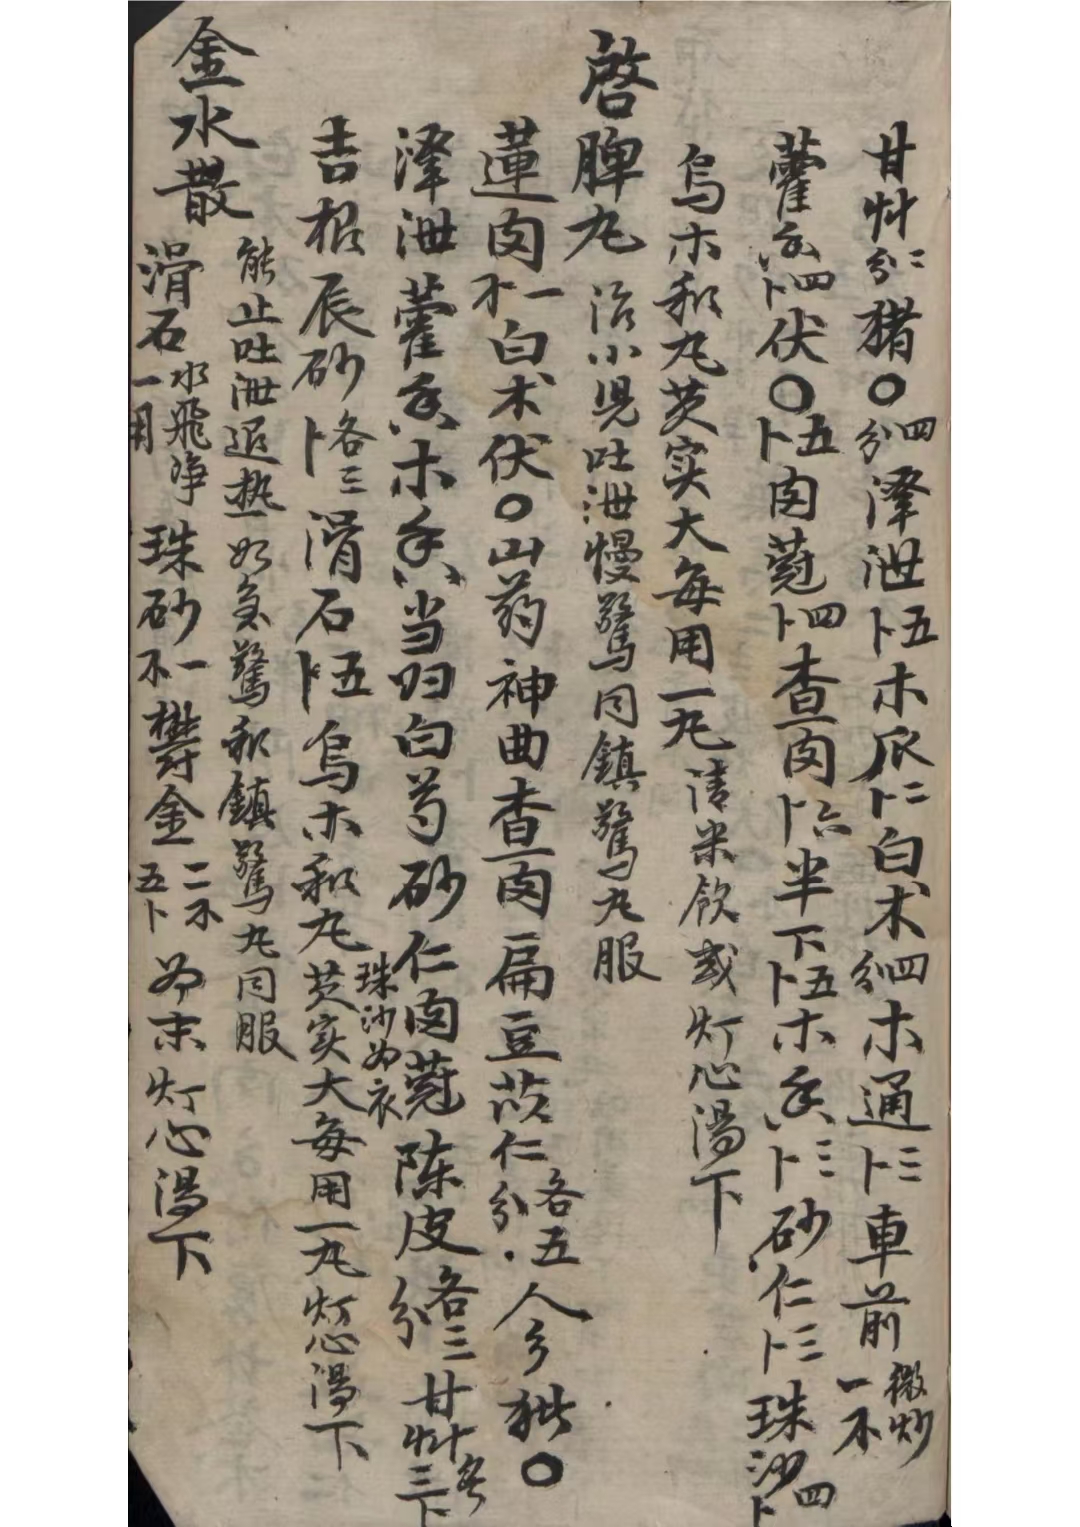 甘草分二猪〇分四泽泄卜五木瓜卜二白术分四木通卜三車前微炒一不
藿香卜四伏〇卜五肉蔻卜四查肉卜六半下卜五木香卜三砂仁卜三珠沙卜四
烏木和丸芡实大每用一丸清米飲或灯心湯下
啓脾丸治小児吐泄慢驚同鎮驚丸服
蓮肉不一白术伏〇山药神曲查肉扁豆苡仁各五分人
泽泄藿香木香当归白芍砂仁肉蔻陈皮各三分甘草三卜
吉根辰砂各三卜滑石五卜烏木和丸芡实大每用一丸灯心湯下
珠沙为衣
金水散能止吐泄退热如急驚和鎮驚丸同服
滑石水飛净一用珠砂一不欝金二不五卜为末灯心湯下